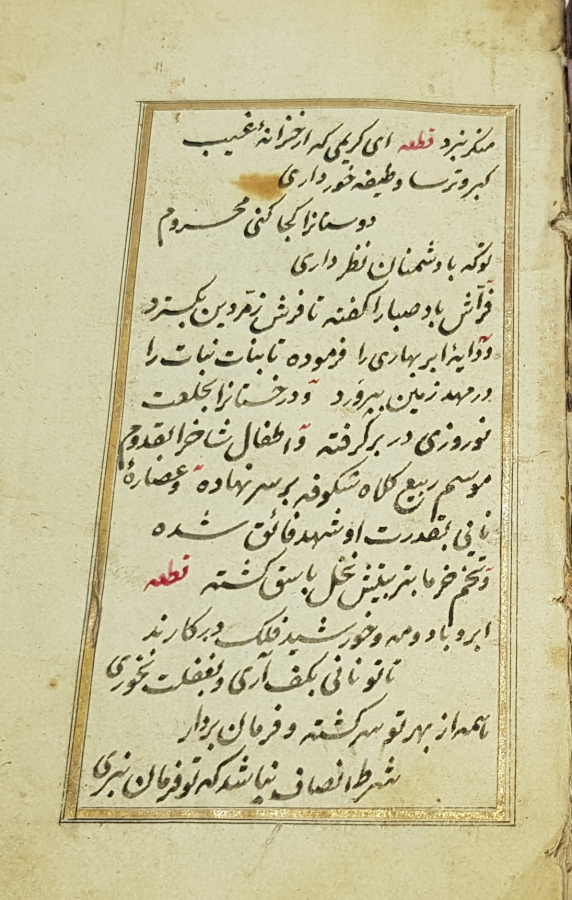 منکر نبرد قطعه ای کریمی که از خزانهٔ غیب
کبر و ترسا وظیفه خور داری
دوستانرا کجا کنی محروم
توکه با دشمنان نظر داری
فرّاش باد صبا را گفته تا فرش زمرّدین بگسترد
و دایهٔ ابر بهاری را فرموده تا بنات نبات را
در مهد زمین بپرورد و درختانرا بخلعت
نوروزی در بر گرفته و اطفال شاخرا بقدوم
موسم ربیع کلاه شکوفه بر سر نهاده و عصارهٔ
نایی بقدرت او شهد فائق شده
و تخم خرما بتربیتش نخل باسق کشته قطعه
ابر و باد و مه و خورشید فلک در کارند
تا تو نانی بکف آری و بغفلت نخوری
همه از بهر تو سرکشته و فرمان بردار
شرط انصاف نباشد که تو فرمان نبری